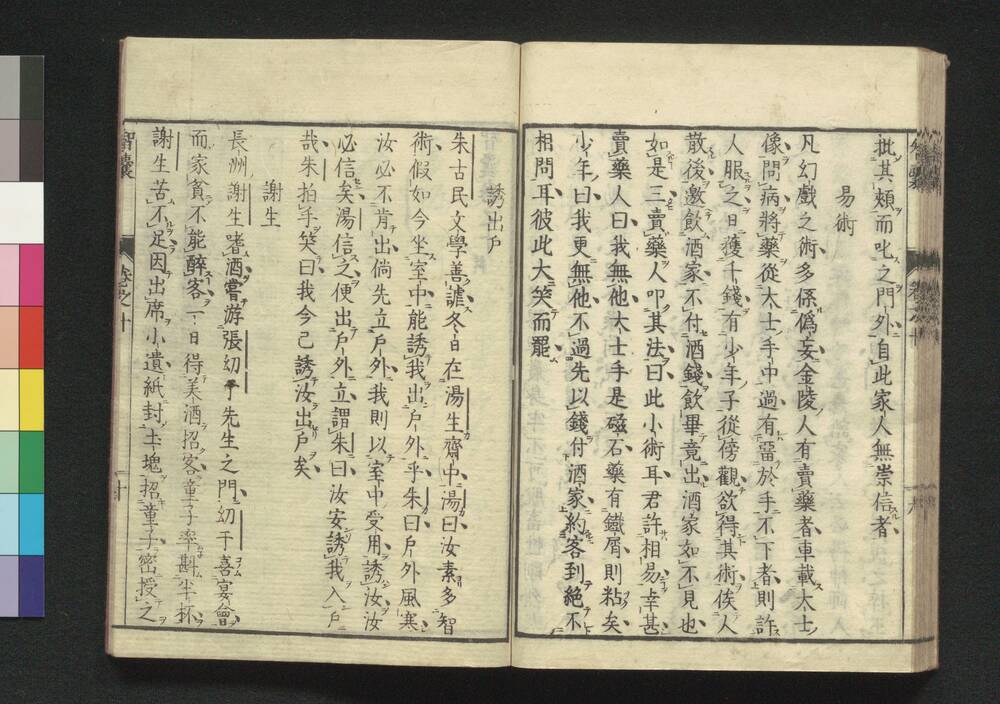 批其頰而叱之門外自此家人無崇信者
易術
凡幻戲之術多係僞妄金陵人有賣藥者車載大士
像問病將藥從大士手中過有畱於手不下者則許
人服之日獲千錢有少年子從傍觀欲得其術俟人
散後邀飲酒家不付酒錢飲畢竟出酒家如不見也
如是三賣藥人叩其法曰此小術耳君許相易幸甚
賣藥人曰我無他大士手是磁石藥有鐵屑則粘矣
少年曰我更無他不過先以錢付酒家約客到絕不
相問耳彼此大笑而罷
智囊
卷之十
誘出戶
朱古民文學善謔冬日在湯生齋中湯曰汝素多智
術假如今坐室中能誘我出戶外乎朱曰戶外風寒
汝必不肯出倘先立戶外我則以室中受用誘汝汝
必信矣湯信之便出戶外立謂朱曰汝安誘我入戶
哉朱拍手笑曰我今已誘汝出戶矣
謝生
長洲謝生嗜酒嘗游張幼于先生之門幼于喜宴會
而家貧不能醉客一日得美酒招客童子率斟半杯
謝生苦不足因出席小遺紙封土塊招童子密授之
智囊
卷之十
十